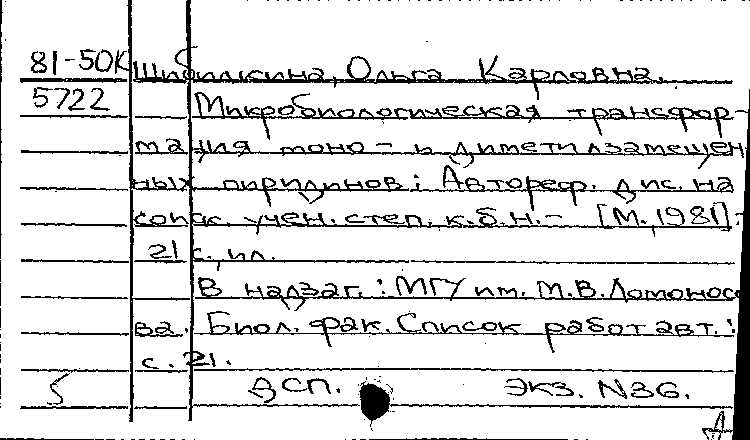 81-50К Шибилкина, Ольга Карловна.
5722 Микробиологическая трансфор-
мация моно- и диметилзамещен
ных пиридинов: Автореф. дис. на
соиск. учен. степ. к.б.н. - [М., 1981]. -
21 с., ил.
В надзаг.: МГУ им. М.В. Ломоносо
ва. Биол. фак. Список работ авт.:
с. 21.
5 ДСП. экз. N36.
А